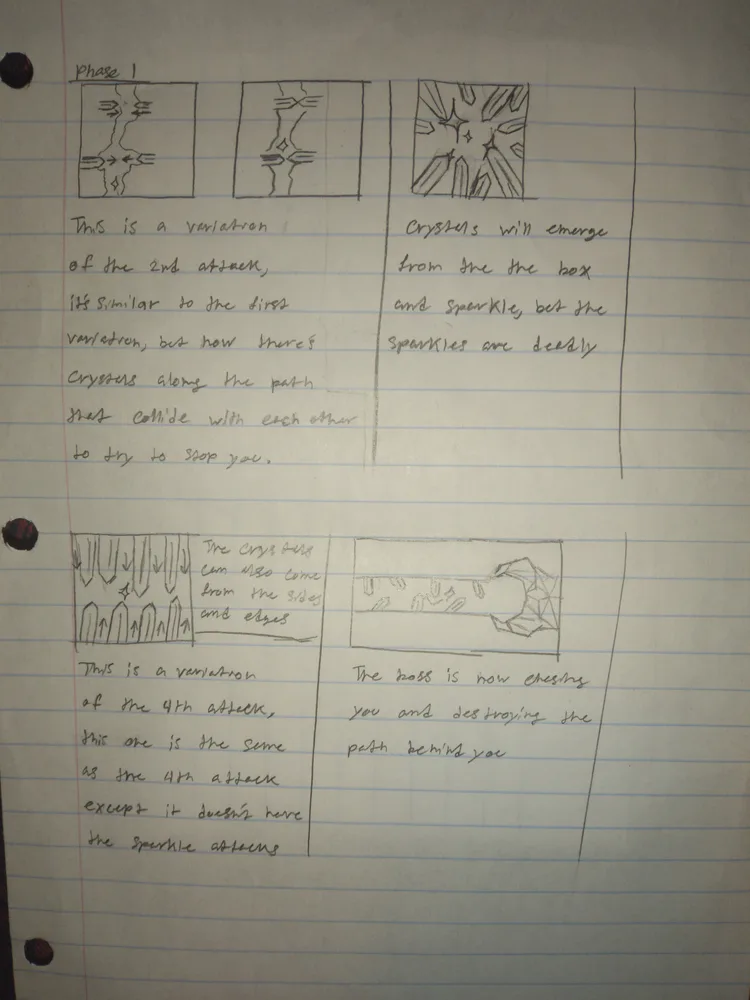 Phase 1
This is a variation
of the 2nd attack,
it's similar to the first
variation, but now there's
crystals along the path
that collide with each other
to try to stop you.
Crystals will emerge
from the the box
and sparkle, but the
sparkles are deadly
The crystals
can also come
from the sides
and edges
This is a variation
of the 4th attack,
this one is the same
as the 4th attack
except it doesn't have
the sparkle attacks
The boss is now chasing
you and destroying the
path behind you